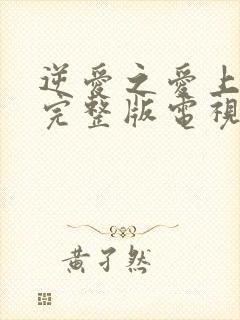 逆愛之愛上
完整版電視
黃孑然